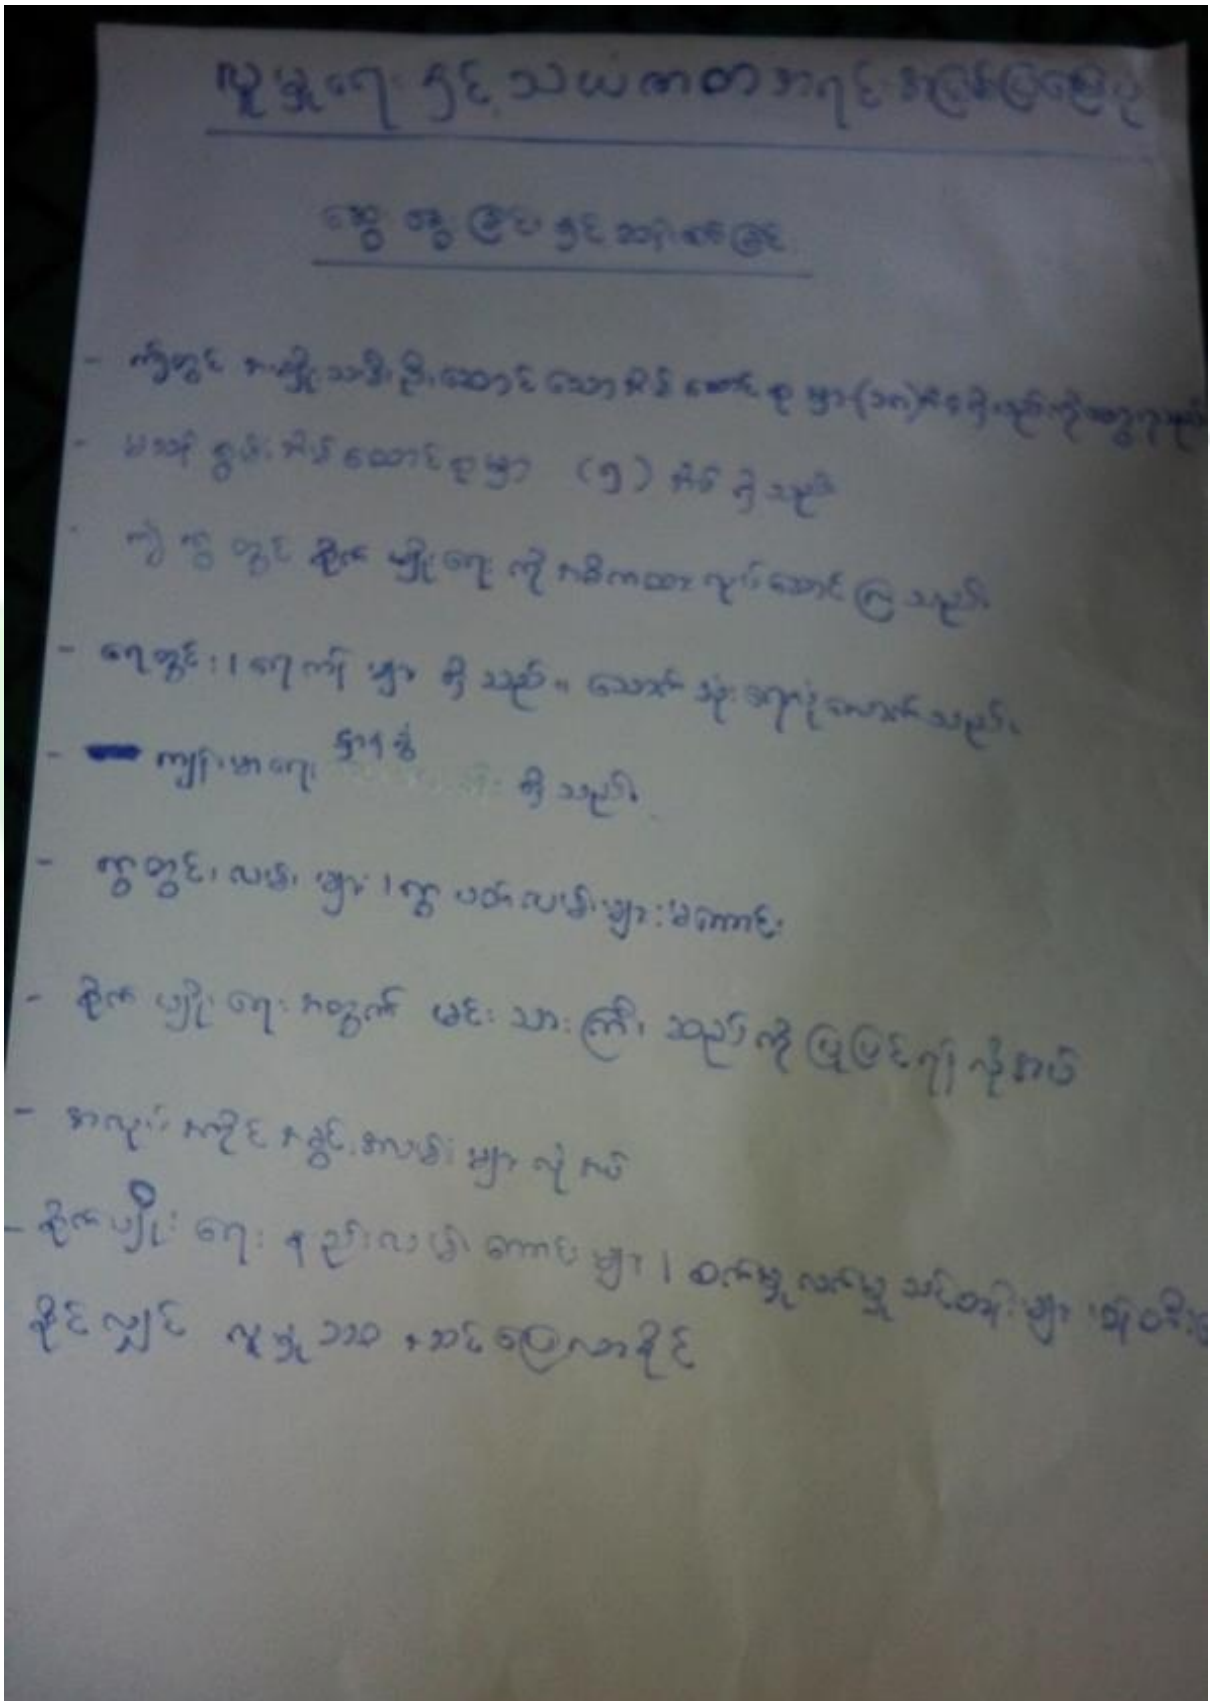 လူမှုရေးနှင့် သယံဇာတအရင်းအမြစ်ပြမြေပုံ
ဆွေးနွေးခြင်းနှင့် ဆန်းစစ်ခြင်း
- ကျွဲတွင် အမျိုးသမီးဦးဆောင်သော အိမ်ထောင်စုများ အိမ်ရှိသည်ကိုတွေ့ရသည်
- မသန်စွမ်းအိမ်ထောင်စုများ (၅) အိမ်ရှိသည်
ကျွဲရွာတွင် စိုက်ပျိုးရေးကို အဓိကထားလုပ်ဆောင်ကြသည်။
- ရေတွင်း၊ ရေကန်များ ရှိသည်။ သောက်သုံးရေလုံလောက်သည်။
- ကျန်းမာရေးဌာနခွဲ ရှိသည်။
- ရွာတွင်းလမ်းများ၊ ရွာပတ်လမ်းများမကောင်း
- စိုက်ပျိုးရေးအတွက် မင်းသားကြီးဆည်ကို ပြုပြင်ရန်လိုအပ်
- အလုပ်အကိုင်အခွင့်အလမ်းများလိုအပ်
- စိုက်ပျိုးရေးနည်းလမ်းကောင်းများ၊ စက်မှုလက်မှုသင်တန်းများ
နိုင်လျှင် လူမှုဘဝအဆင်ပြေလာနိုင်